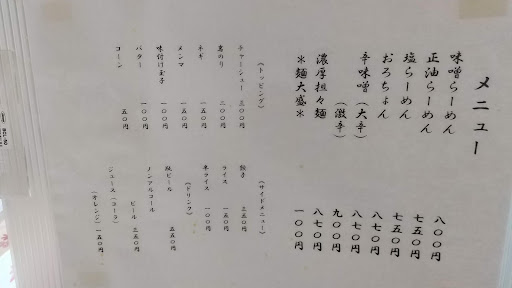 メニュー
味噌らーめん 八〇〇円
正油らーめん 七五〇円
塩らーめん 七五〇円
おろちょん 八七〇円
辛味噌（大辛） 八七〇円
（激辛） 九〇〇円
濃厚担々麺 八七〇円
＊麺大盛＊ 一〇〇円
（トッピング）
チャーシュー 三〇〇円
岩のり 二〇〇円
ネギ 一五〇円
メンマ 一〇〇円
味付け玉子 一〇〇円
バター 一〇〇円
コーン 五〇円
（サイドメニュー）
餃子 三五〇円
ライス 一五〇円
半ライス 一〇〇円
（ドリンク）
瓶ビール 五五〇円
ノンアルコール
ビール 三五〇円
ジュース（コーラ）
（オレンジ）一五〇円